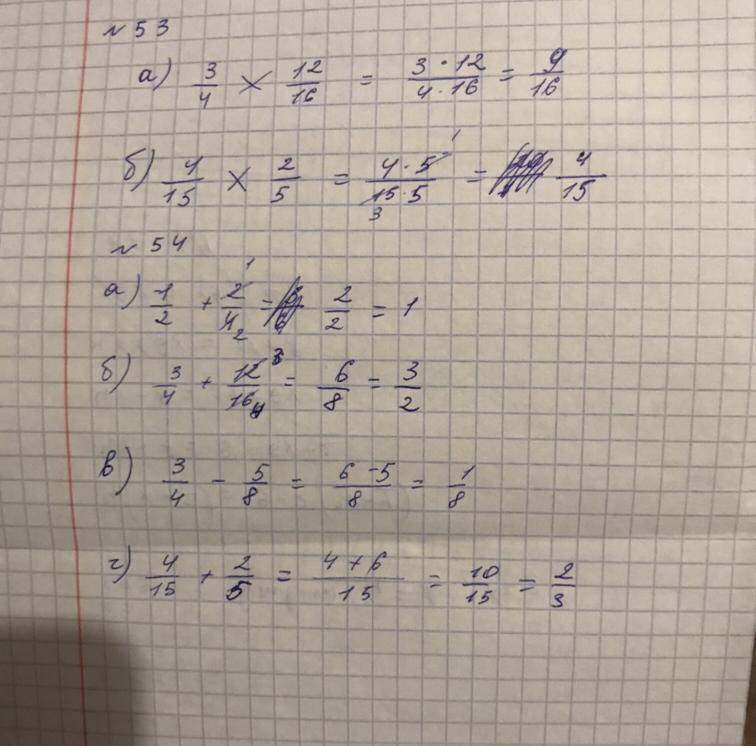 №53
а) 3/4 × 12/16 = 3·12/4·16 = 9/16
б) 4/15 × 2/5 = 4·5 1/15·5 3 = 4/15
№54
а) 1/2 + 2 1/4 2 = 2/2 = 1
б) 3/4 + 12 3/16 4 = 6/8 = 3/2
в) 3/4 - 5/8 = 6-5/8 = 1/8
г) 4/15 + 2/5 = 4+6/15 = 10/15 = 2/3